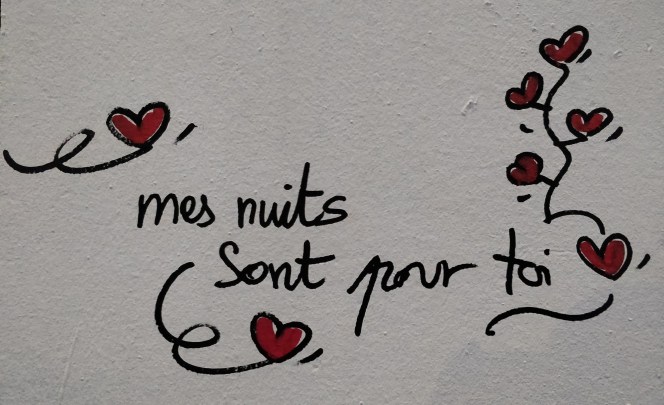 mes nuits
sont pour toi